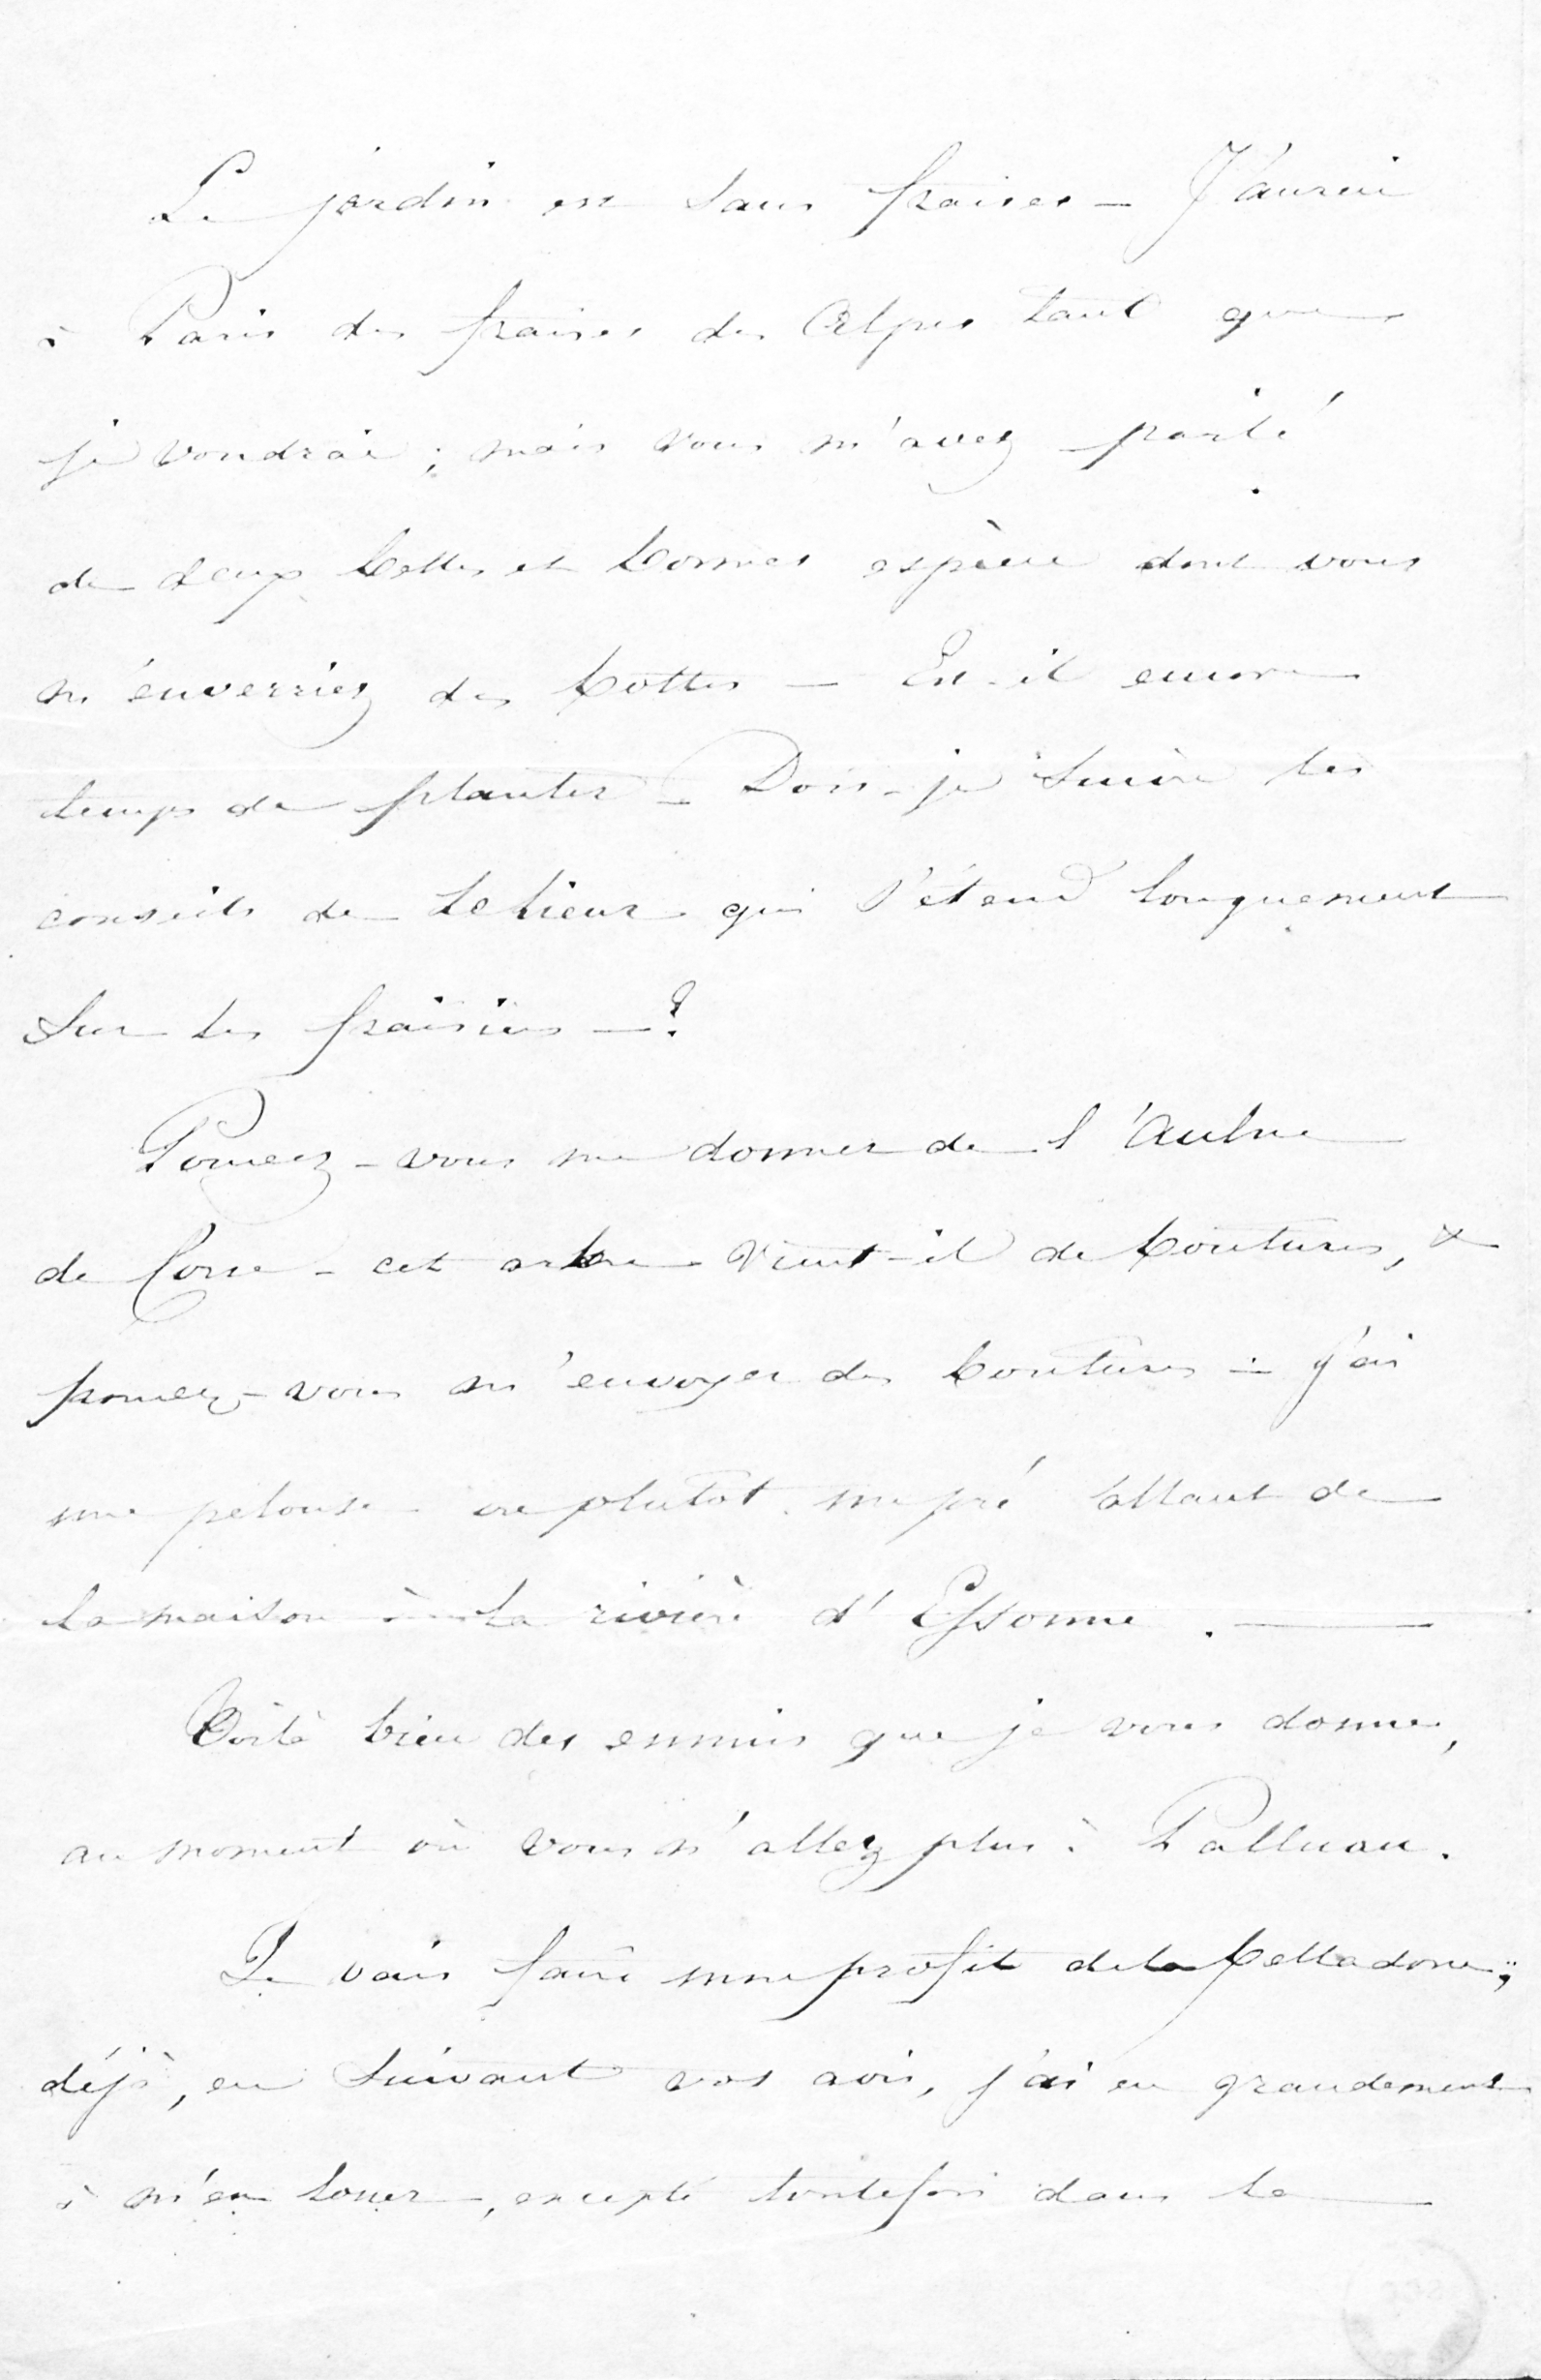 Le jardin est sans fraises — J'aurai
à Paris des fraises des Alpes tant que
je voudrai ; mais vous m'avez parlé
de deux belles et bonnes espèces dont vous
m'enverriez des bottes — Est-il encore
temps de planter — Dois-je suivre les
conseils de Lelieur qui s'étend longuement
sur les fraisiers — ?
Pouvez-vous me donner de l'Aulne
de Corse - cet arbre vient-il de boutures, &
pouvez-vous m'envoyer des boutures — j'ai
une pelouse ou plutôt un pré allant de
la maison à la rivière d'Essonne . —
Voilà bien des ennuis que je vous donne,
au moment où vous n'allez plus à Palluau.
Je vais faire mon profit de la belladone ;
déjà, en suivant vos avis, j'ai eu grandement
à m'en louer, excepté toutefois dans le